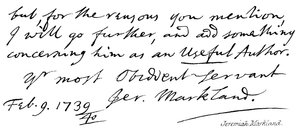 but, for the reasons you mention,
I will go further, and add something
concerning him as an Useful Author.
Yr most Obedient Servant
Feb. 9. 1739/40 Jer. Markland.
Jeremiah Markland